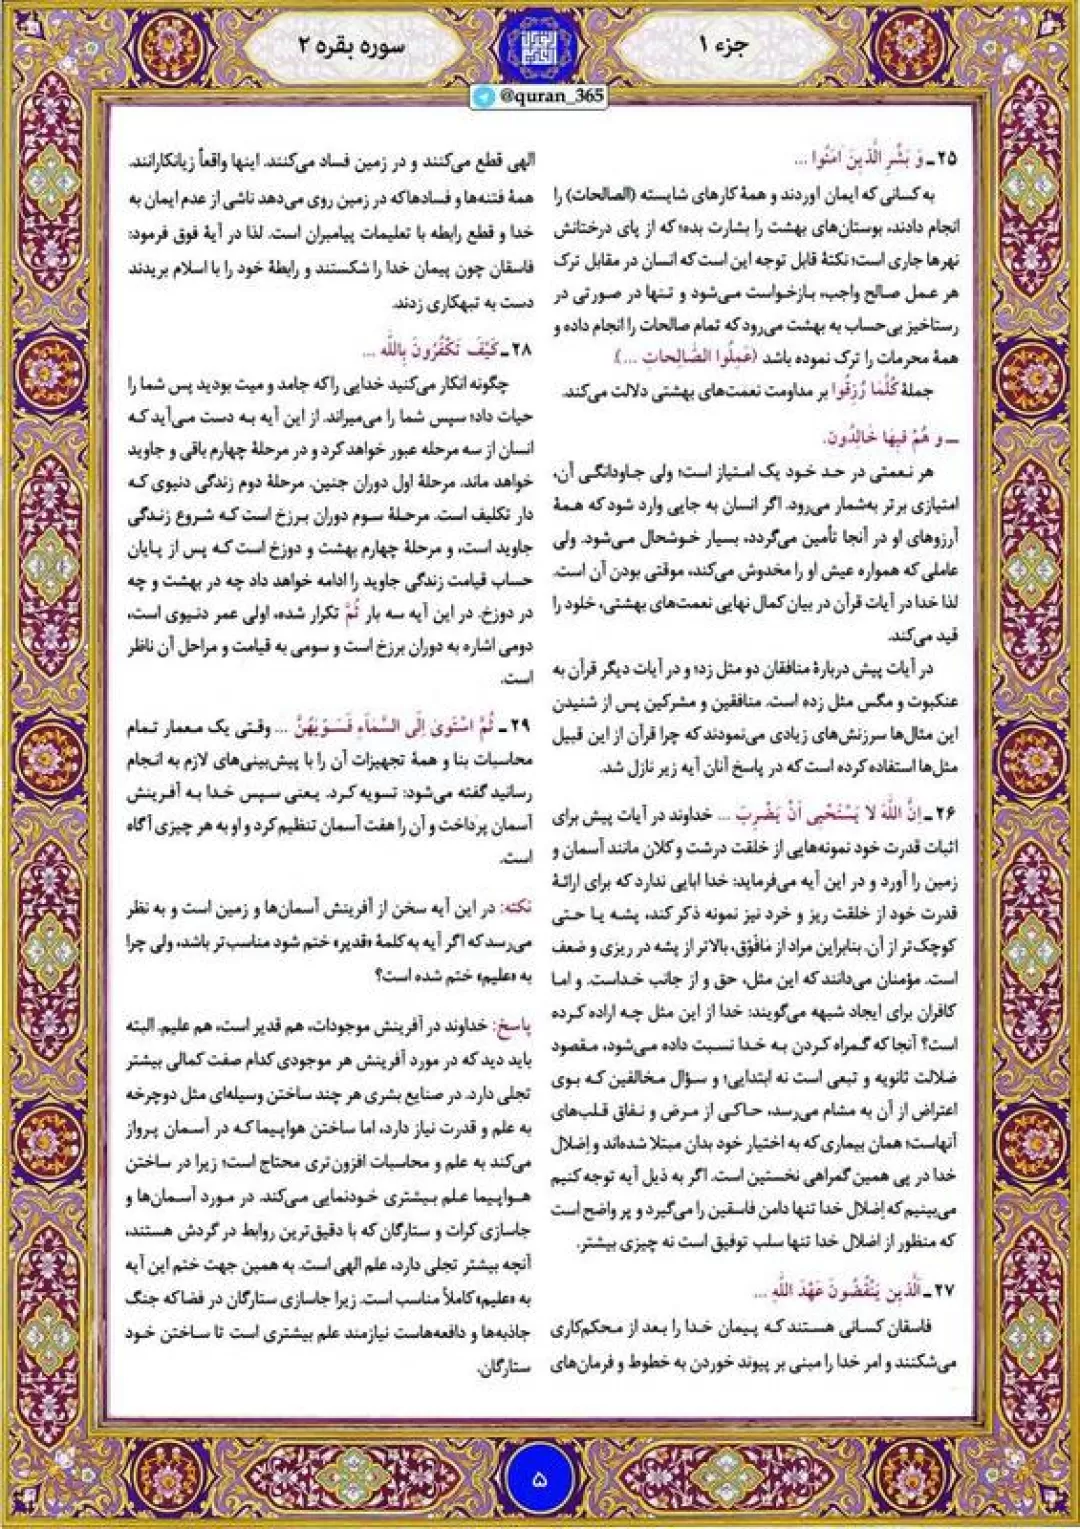 جزء ۱
سوره بقره ۲
@quran_365
۲۵ـ وَ بَشِّرِ الَّذینَ آمَنُوا ...
به کسانی که ایمان آوردند و همهٔ کارهای شایسته (الصالحات) را
انجام دادند، بوستان‌های بهشت را بشارت بده؛ که از پای درختانش
نهرها جاری است؛ نکتهٔ قابل توجه این است که انسان در مقابل ترک
هر عمل صالح واجب، بازخواست می‌شود و تنها در صورتی در
رستاخیز بی‌حساب به بهشت می‌رود که تمام صالحات را انجام داده و
همهٔ محرمات را ترک نموده باشد (عَمِلُوا الصَّالِحاتِ ...).
جملهٔ كُلَّمَا رُزِقُوا بر مداومت نعمت‌های بهشتی دلالت می‌کند.
ـ و هُمْ فیهَا خَالِدُونَ.
هر نعمتی در حد خود یک امتیاز است؛ ولی جاودانگی آن،
امتیازی برتر به‌شمار می‌رود. اگر انسان به جایی وارد شود که همهٔ
آرزوهای او در آنجا تأمین می‌گردد، بسیار خوشحال می‌شود. ولی
عاملی که همواره عیش او را مخدوش می‌کند، موقتی بودن آن است.
لذا خدا در آیات قرآن در بیان کمال نهایی نعمت‌های بهشتی، خلود را
قید می‌کند.
در آیات پیش دربارهٔ منافقان دو مثل زد؛ و در آیات دیگر قرآن به
عنکبوت و مگس مثل زده است. منافقین و مشرکین پس از شنیدن
این مثال‌ها سرزنش‌های زیادی می‌نمودند که چرا قرآن از این قبیل
مثل‌ها استفاده کرده است که در پاسخ آنان آیه زیر نازل شد.
۲۶ـ إِنَّ اللّٰهَ لا یَسْتَحْیی أَنْ یَضْرِبَ ... خداوند در آیات پیش برای
اثبات قدرت خود نمونه‌هایی از خلقت درشت و کلان مانند آسمان و
زمین را آورد و در این آیه می‌فرماید: خدا ابایی ندارد که برای ارائهٔ
قدرت خود از خلقت ریز و خرد نیز نمونه ذکر کند، پشه یا حتی
کوچک‌تر از آن. بنابراین مراد از مَافَوْق، بالاتر از پشه در ریزی و ضعف
است. مؤمنان می‌دانند که این مثل، حق و از جانب خداست. و اما
کافران برای ایجاد شبهه می‌گویند: خدا از این مثل چه اراده کرده
است؟ آنجا که گمراه کردن به خدا نسبت داده می‌شود، مقصود
ضلالت ثانویه و تبعی است نه ابتدایی؛ و سؤال مخالفین که بوی
اعتراض از آن به مشام می‌رسد، حاکی از مرض و نفاق قلب‌های
آنهاست؛ همان بیماری که به اختیار خود بدان مبتلا شده‌اند و إضلال
خدا در پی همین گمراهی نخستین است. اگر به ذیل آیه توجه کنیم
می‌بینیم که إضلال خدا تنها دامن فاسقین را می‌گیرد و پر واضح است
که منظور از اضلال خدا تنها سلب توفیق است نه چیزی بیشتر.
۲۷ـ اَلَّذِینَ یَنْقُضُونَ عَهْدَ اللّٰهِ ...
فاسقان کسانی هستند که پیمان خدا را بعد از محکم‌کاری
می‌شکنند و امر خدا را مبنی بر پیوند خوردن به خطوط و فرمان‌های
الهی قطع می‌کنند و در زمین فساد می‌کنند. اینها واقعاً زیانکارانند.
همهٔ فتنه‌ها و فسادها که در زمین روی می‌دهد ناشی از عدم ایمان به
خدا و قطع رابطه با تعلیمات پیامبران است. لذا در آیهٔ فوق فرمود:
فاسقان چون پیمان خدا را شکستند و رابطهٔ خود را با اسلام بریدند
دست به تبهکاری زدند.
۲۸ـ كَیْفَ تَكْفُرُونَ بِاللّٰه ...
چگونه انکار می‌کنید خدایی را که جامد و میت بودید پس شما را
حیات داد؛ سپس شما را می‌میراند. از این آیه به دست می‌آید که
انسان از سه مرحله عبور خواهد کرد و در مرحلهٔ چهارم باقی و جاوید
خواهد ماند. مرحلهٔ اول دوران جنین. مرحلهٔ دوم زندگی دنیوی که
دار تکلیف است. مرحلهٔ سوم دوران برزخ است که شروع زندگی
جاوید است، و مرحلهٔ چهارم بهشت و دوزخ است که پس از پایان
حساب قیامت زندگی جاوید را ادامه خواهد داد چه در بهشت و چه
در دوزخ. در این آیه سه بار ثُمَّ تکرار شده، اولی عمر دنیوی است،
دومی اشاره به دوران برزخ است و سومی به قیامت و مراحل آن ناظر
است.
۲۹ـ ثُمَّ اسْتَوىٰ إِلَی السَّمَاءِ فَسَوّٰیهُنَّ ... وقتی یک معمار تمام
محاسبات بنا و همهٔ تجهیزات آن را با پیش‌بینی‌های لازم به انجام
رسانید گفته می‌شود: تسویه کرد. یعنی سپس خدا به آفرینش
آسمان پرداخت و آن را هفت آسمان تنظیم کرد و او به هر چیزی آگاه
است.
نکته: در این آیه سخن از آفرینش آسمان‌ها و زمین است و به نظر
می‌رسد که اگر آیه به کلمهٔ «قدیر» ختم شود مناسب‌تر باشد، ولی چرا
به «علیم» ختم شده است؟
پاسخ: خداوند در آفرینش موجودات، هم قدیر است، هم علیم. البته
باید دید که در مورد آفرینش هر موجودی کدام صفت کمالی بیشتر
تجلی دارد. در صنایع بشری هر چند ساختن وسیله‌ای مثل دوچرخه
به علم و قدرت نیاز دارد، اما ساختن هواپیما که در آسمان پرواز
می‌کند به علم و محاسبات افزون‌تری محتاج است؛ زیرا در ساختن
هواپیما علم بیشتری خودنمایی می‌کند. در مورد آسمان‌ها و
جاسازی کرات و ستارگان که با دقیق‌ترین روابط در گردش هستند،
آنچه بیشتر تجلی دارد، علم الهی است. به همین جهت ختم این آیه
به «علیم» کاملاً مناسب است. زیرا جاسازی ستارگان در فضا که جنگ
جاذبه‌ها و دافعه‌هاست نیازمند علم بیشتری است تا ساختن خود
ستارگان.
۵